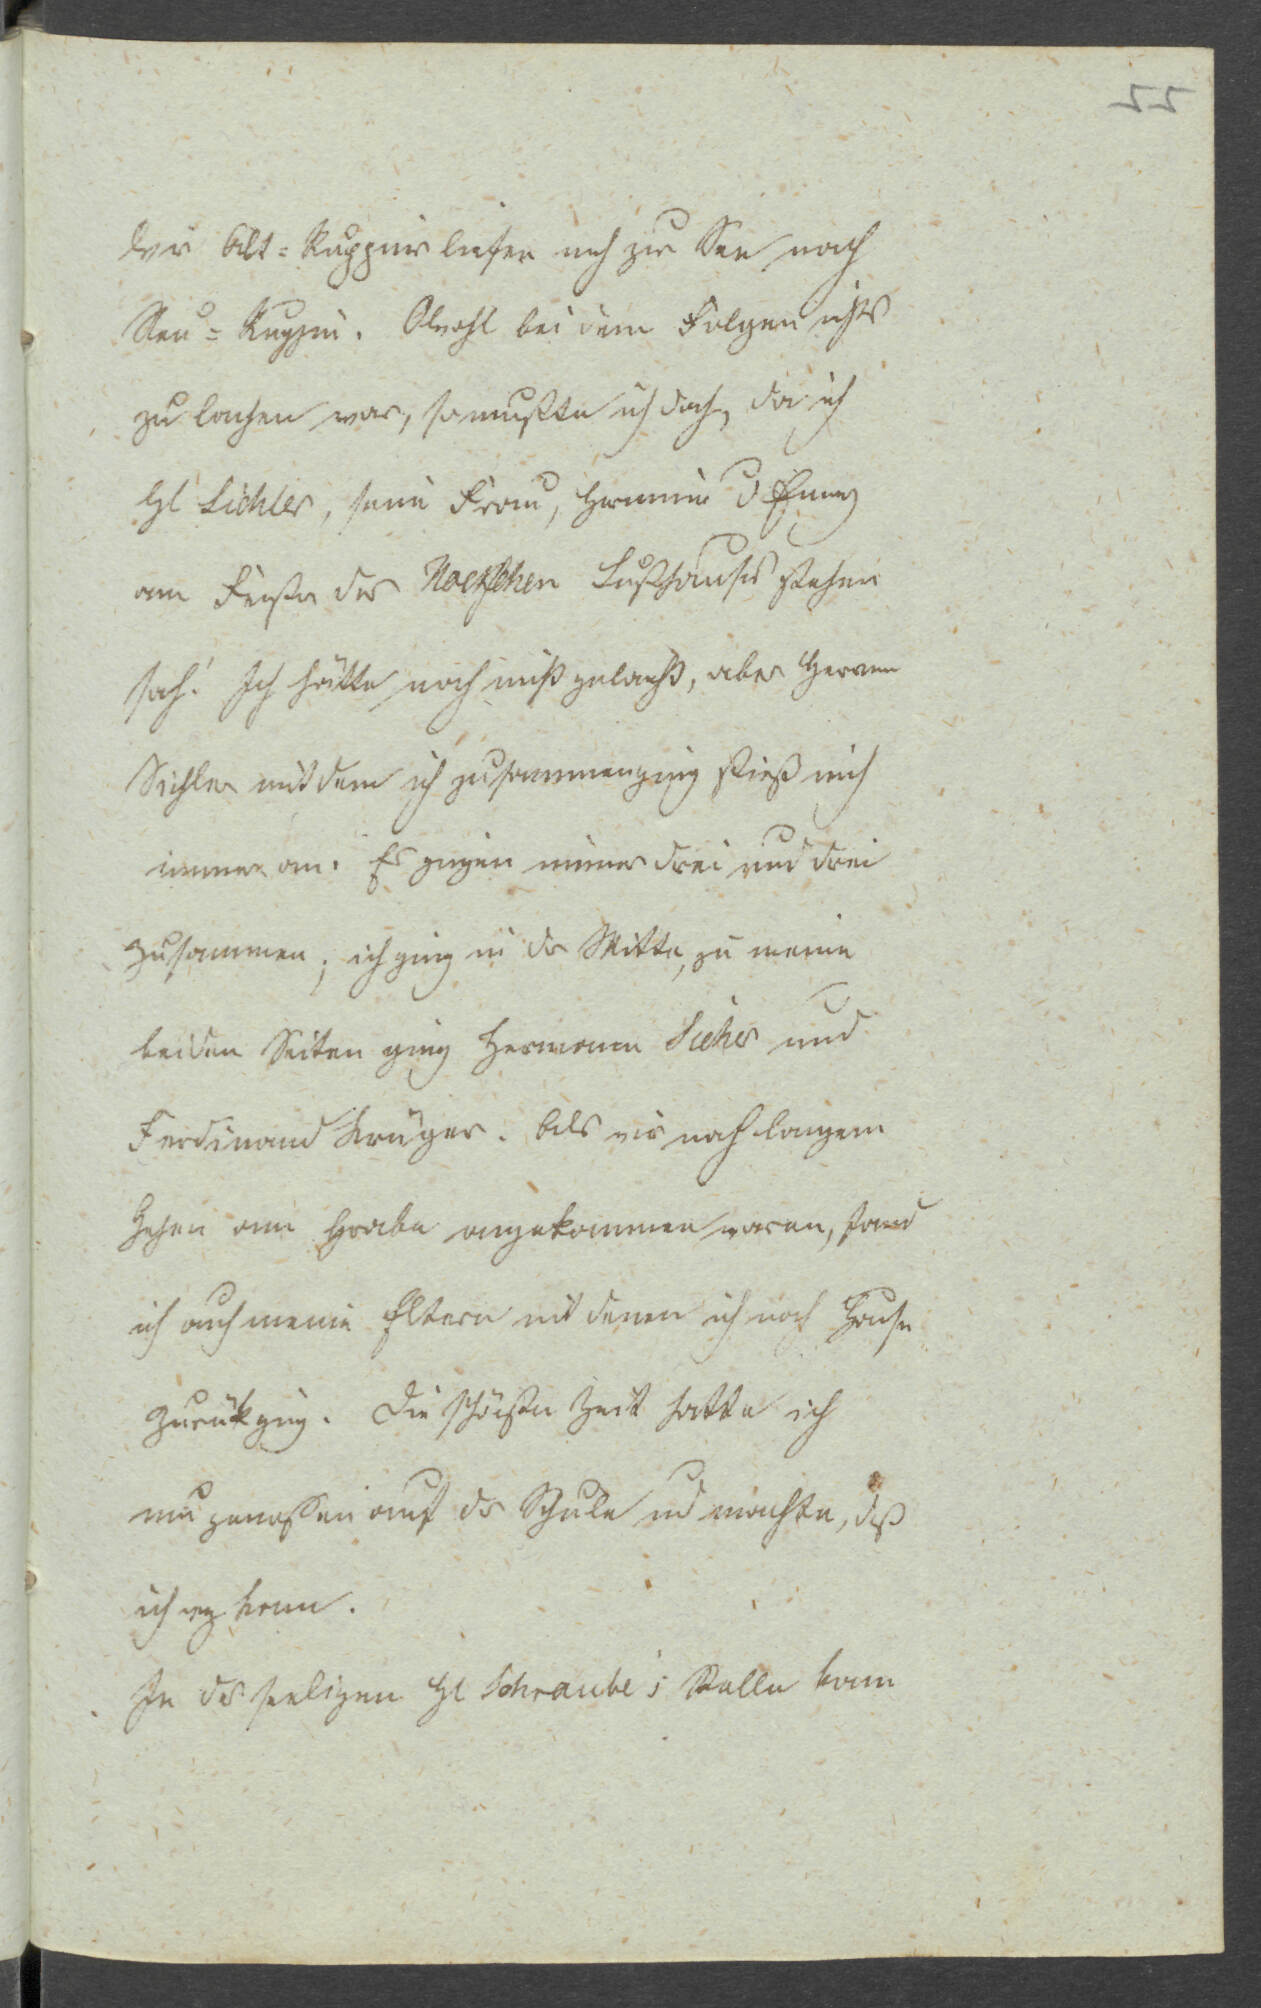 22
der Alt=Ruppiner liefen noch zur See nach
Neu=Ruppin. Obwohl bei dem Folgen nichts
zu lachen war, so mußte ich doch, da ich
H Lichler, seine Frau, Hermine u
am Fenster des Noeldchen Lusthauses stehen
sah! Ich hätte noch nicht gelacht, aber Herrmann
Sichler mit dem ich zusammenging stieß mich
immer an. Es gingen immer drei und drei
zusammen; ich ging in der Mitte, zu meine
beiden Seiten ging Hermann Sichler und
Ferdinand Krüger. Als wir nach langem
Gehen am Grabe angekommen waren, fand
ich auch meine Eltern mit denen ich nach Hause
zurückging. Die schönste Zeit hatte ich
nun genossen auf der Schule und machte, daß
ich weg kam.
In des seeligen H Schraube's Stelle kam